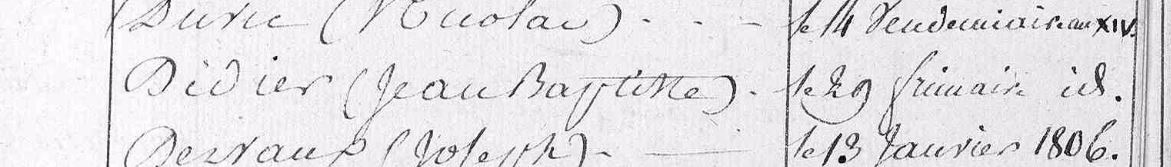 Durie (Nicolas) - - - le 14 Vendemiaire an XIV.
Didier (Jean Baptiste) - le 29 frimaire id.
(Joseph) - le 13 Janvier 1806.